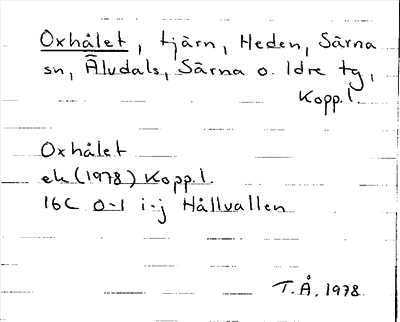 Oxhålet, tjärn, Heden, Särna
sn, Älvdals, Särna o. Idre tg,
Kopp.l.
Oxhålet
ek (1978) Kopp.l.
16C 0-1 i-j Hållvallen
T.Å. 1978